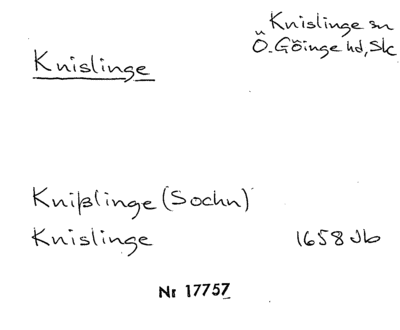 Knislinge
Knislinge sn
Ö. Göinge hd, Sk
Knißlinge (Sochn)
Knislinge 1658 Jb
Nr 17757